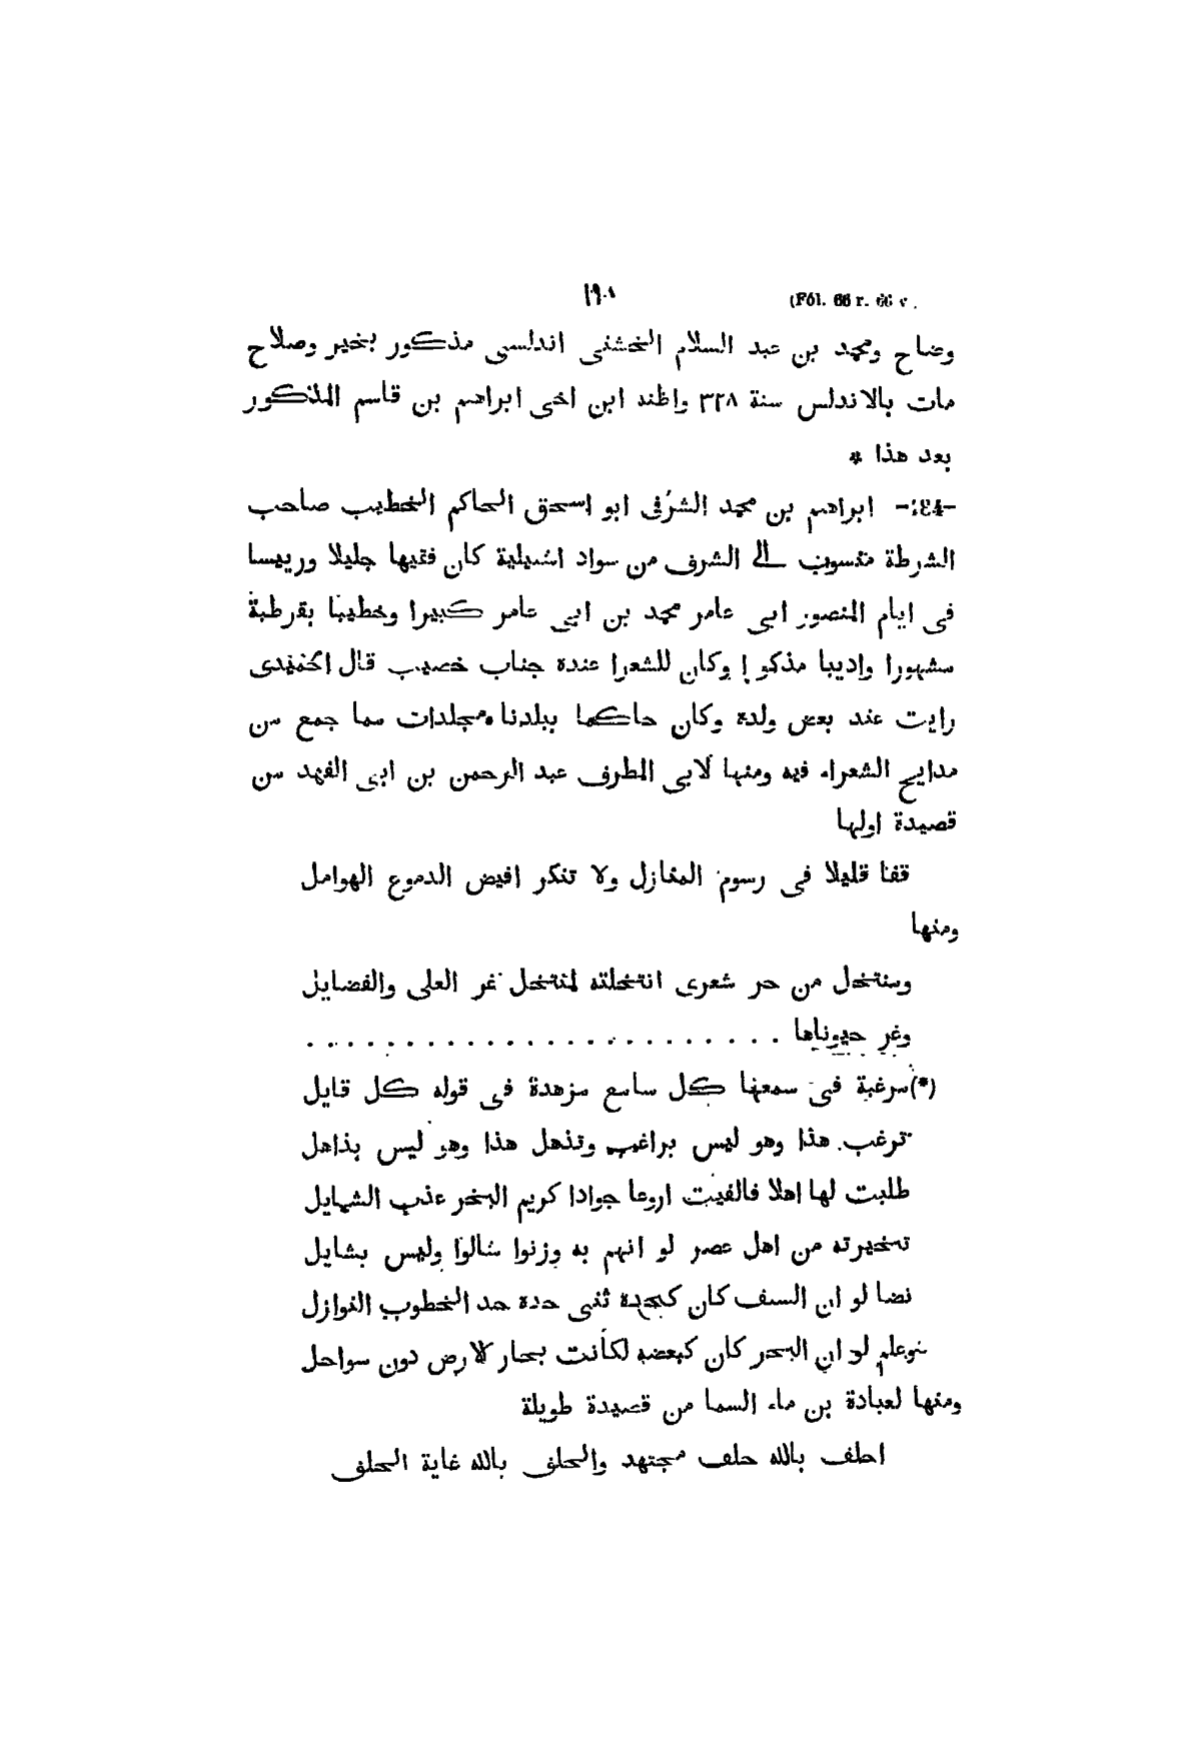 (Fól. 66 r. 66 v. ١٩٠
وضاح ومحمد بن عبد السلام الخشنى اندلسى مذكور بخير وصلاح
مات بالاندلس سنة ٣٢٨ واظنه ابن اخى ابراهيم بن قاسم المذكور
بعد هذا *
-484- ابراهيم بن محمد الشرفى ابو اسحق الحاكم الخطيب صاحب
الشرطة منسوب الى الشرف من سواد اشبيلية كان فقيها جليلا ورييسا
فى ايام المنصور ابى عامر محمد بن ابى عامر كبيرا وخطيبا بقرطبة
مشهورا واديبا مذكورا وكان للشعرا عنده جناب خصيب قال الحميدى
رايت عند بعض ولده وكان حاكما ببلدنا مجلدات مما جمع من
مدايح الشعراء فيه ومنها لابى المطرف عبد الرحمن بن ابى الفهد من
قصيدة اولها
قفا قليلا فى رسوم المنازل ولا تنكر افيض الدموع الهوامل
ومنها
ومنتخل من حر شعرى انتخلته لمنتخل غر العلى والفضايل
وغر ........................
(*)مرغبة فى سمعها كل سامع مزهدة فى قوله كل قايل
ترغب هذا وهو ليس براغب وتذهل هذا وهو ليس بذاهل
طلبت لها اهلا فالفيت اروعا جوادا كريم البخر عذب الشمايل
تخيرته من اهل عصر لو انهم به وزنوا شالوا وليس بشايل
نضا لو ان السيف كان كحده ثنى حده حد الخطوب النوازل
وعلم لو ان البحر كان كبعضه لكانت بحار الارض دون سواحل
ومنها لعبادة بن ماء السما من قصيدة طويلة
احلف بالله حلف مجتهد والحلف بالله غاية الحلف